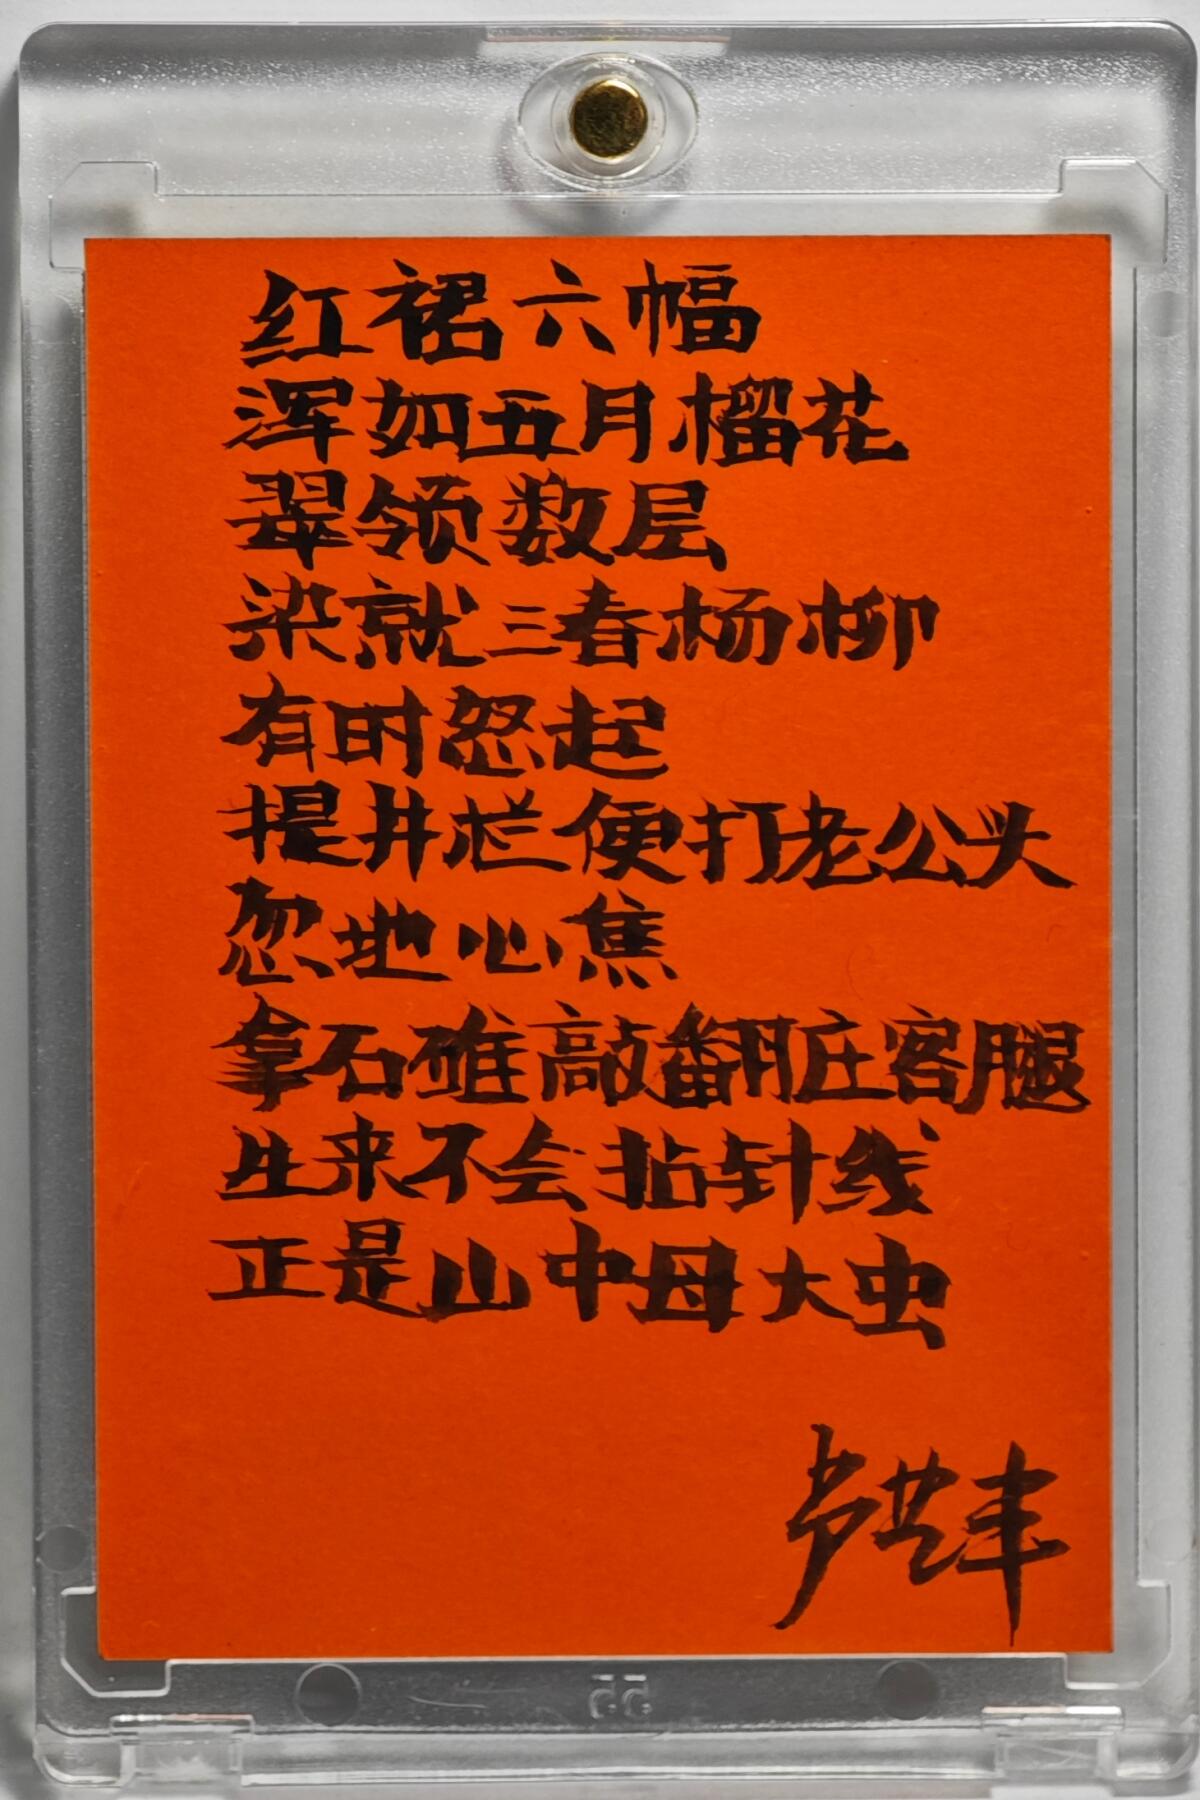 红裙六幅
浑如五月榴花
翠领数层
染就三春杨柳
有时怒起
提井栏便打老公头
忽地心焦
拿石碓敲翻庄客腿
生来不会拈针线
正是山中母大虫
卢世丰
55